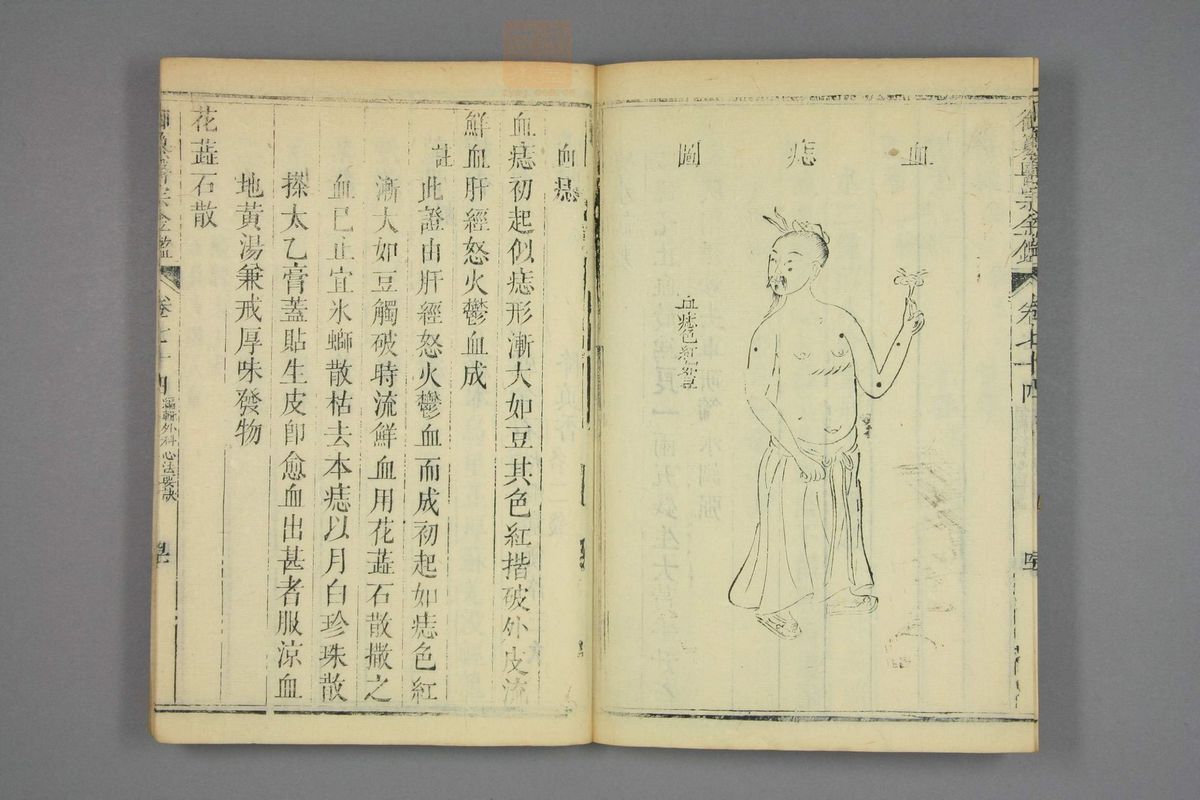 御纂醫宗金鑑 卷七十四
血痣圖
血痣色紅如豆
血痣
血痣初起似痣形漸大如豆其色紅揩破外皮流
鮮血肝經怒火鬱血成
註
此證由肝經怒火鬱血而成初起如痣色紅
漸大如豆觸破時流鮮血用花蕋石散撒之
血已止宜氷螄散枯去本痣以月白珍珠散
搽太乙膏蓋貼生皮卽愈血出甚者服涼血
地黃湯兼戒厚味發物
花蕋石散
御纂醫宗金鑑 卷七十四 編輯外科心法要訣